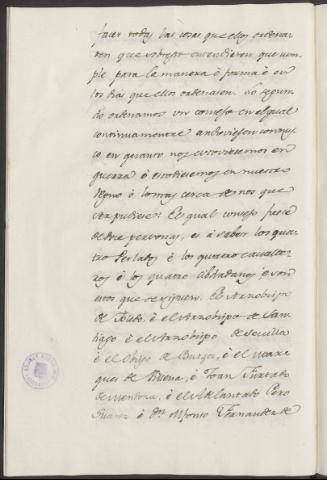 facer todas las cosas que ellos ordenar
ren que sobrepo entendieren que cum
ple para la manera é forma é en
los dias que ellos ordenaren. Lo segun
do ordenamos un consejo en el qual
continuamente andoviesen connus
co en quanto nos estovieremos en
guerra ó estoviesemos en nuestro
Reyno ó lo mas cerca de nos que
ser pudiese: El qual consejo fuese
de doce personas, es á saber los qua
tro Perlados é los quatro cavalle
ros é los quatro cibdadanos é son
estos que se siguen. El Arzobispo
de Toledo, é el Arzobispo de San
tiago é el Arzobispo de Sevilla
é el Obispo de Burgos, é el Mar
ques de Villena, é Joan Furtado
de Mendoza, é el Adelantado Pero
Suarez é Dn. Alfonso Fernandez de